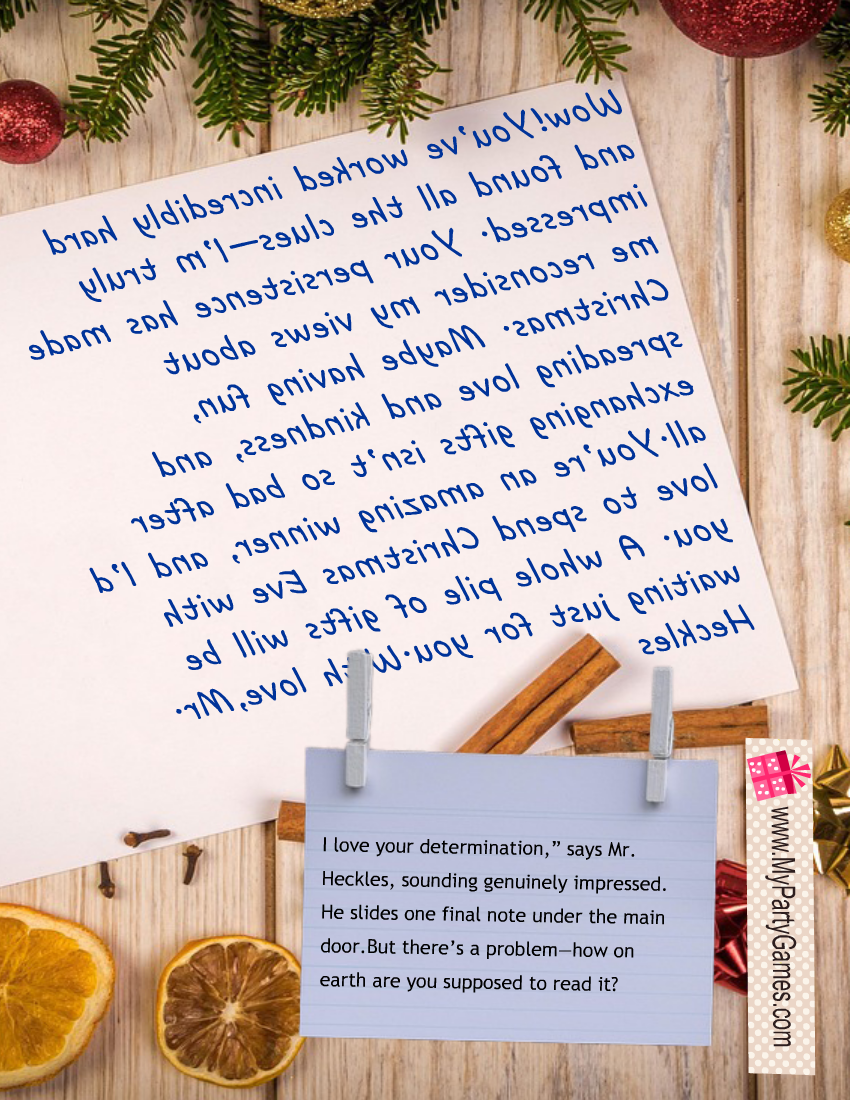 Wow!You've worked incredibly hard
and found all the clues—I'm truly
impressed. Your persistence has made
me reconsider my views about
Christmas. Maybe having fun,
spreading love and kindness, and
exchanging gifts isn't so bad after
all.You're an amazing winner, and I'd
love to spend Christmas Eve with
you. A whole pile of gifts will be
waiting just for you.With love,Mr.
Heckles
I love your determination,” says Mr.
Heckles, sounding genuinely impressed.
He slides one final note under the main
door.But there’s a problem—how on
earth are you supposed to read it?
www.MyPartyGames.com